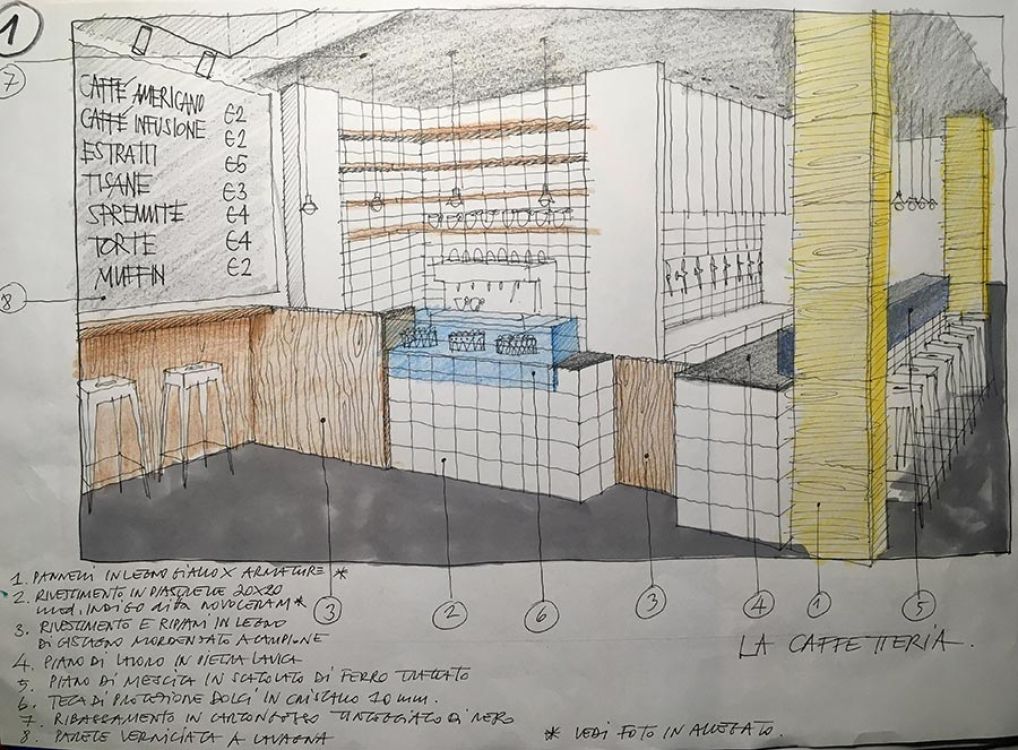 1
7
CAFFÉ AMERICANO €2
CAFFÉ INFUSIONE €2
ESTRATTI €5
TISANE €3
SPREMUTE €4
TORTE €4
MUFFIN €2
8
3
2
6
3
4
1
5
LA CAFFETTERIA.
1. PANNELLI IN LEGNO GIALLO X ARMATURE *
2. RIVESTIMENTO IN PIASTRELLE 20X20
mod. INDIGO ditta NOVOCERAM *
3. RIVESTIMENTO E RIPIANI IN LEGNO
DI CASTAGNO MORDENZATO A CAMPIONE
4. PIANO DI LAVORO IN PIETRA LAVICA
5. PIANO DI MESCITA IN SCATOLATO DI FERRO TRATTATO
6. TECA DI PROTEZIONE DOLCI IN CRISTALLO 10 mm.
7. RIBASSAMENTO IN CARTONGESSO TINTEGGIATO DI NERO
8. PARETE VERNICIATA A LAVAGNA
* VEDI FOTO IN ALLEGATO.